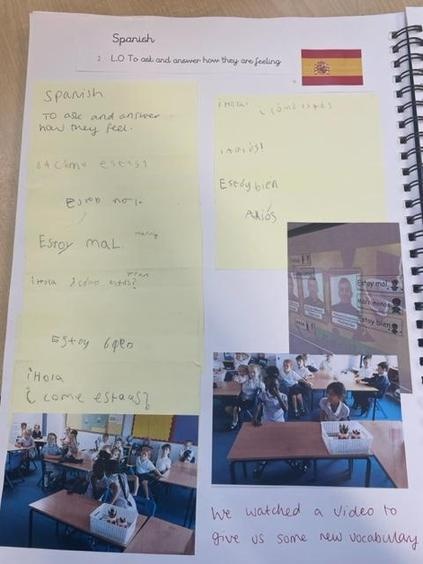 Spanish
L.O To ask and answer how they are feeling
Spanish
TO ask and answer
how they feel.
¿Cómo estás?
Estoy mal.
¡Hola ¿cómo estás?
Estoy bien
¡Hola
¿ come estaas?
¡Hola! ¿cómo estás
¡Adiós!
Estoy bien
Adiós
Estoy mal
Estoy bien
We watched a video to
give us some new vocabulary